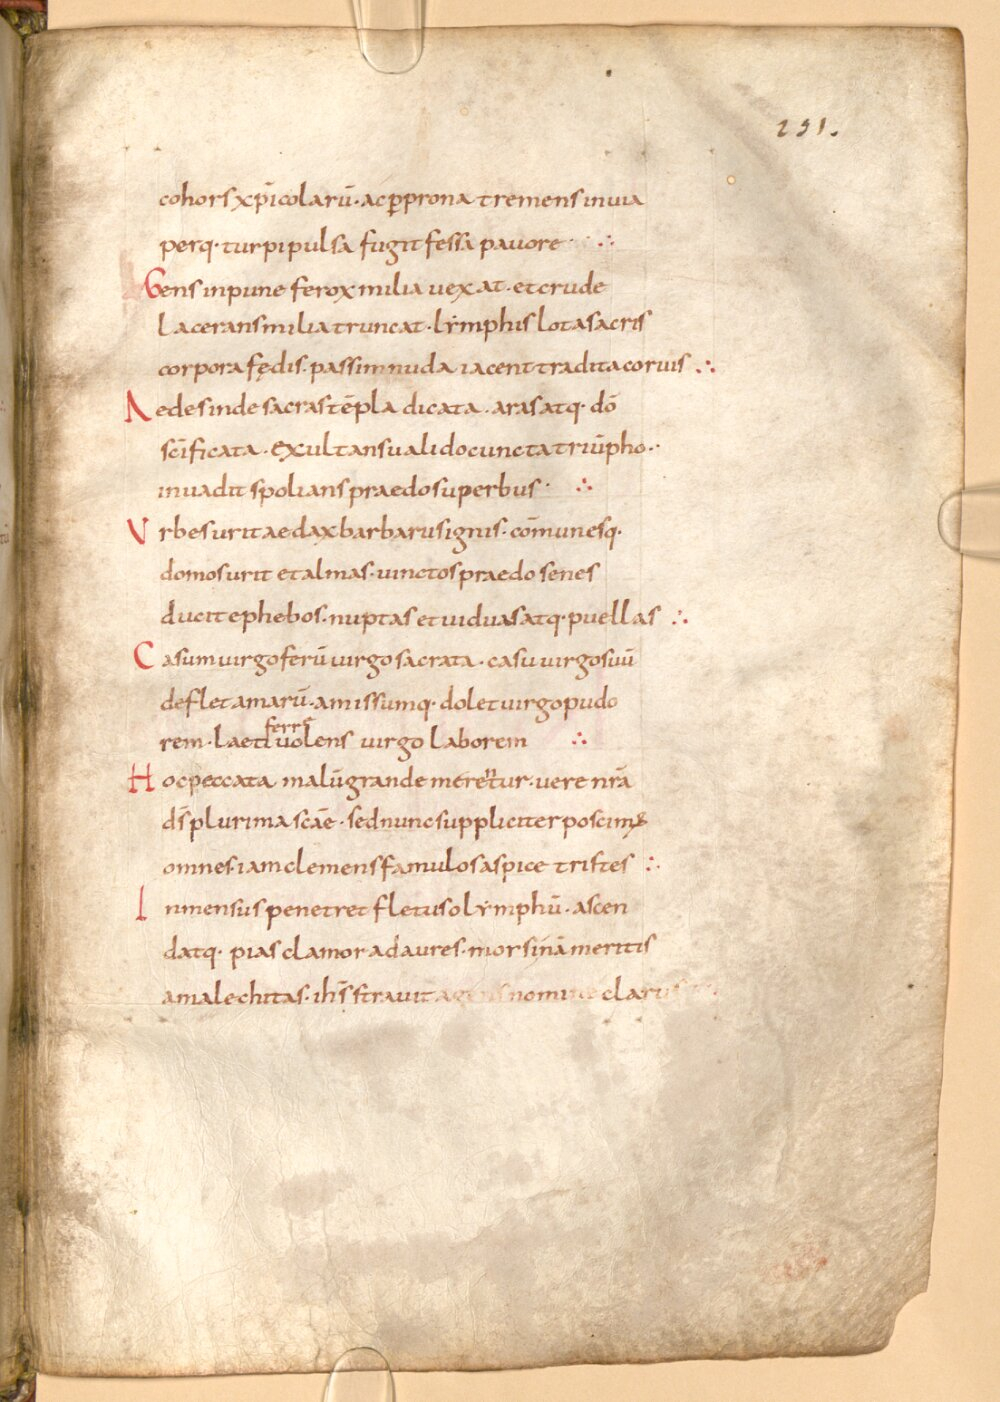 251.
cohors xp̄icolarū · ac ꝑ prona tremens inuia
perq· turpi pulsa fugit fessa pauore ·
Gens inpune ferox milia uexat · et crude
lacerans milia truncat · lẏmphis lota sacris
corpora fędis · passim nuda iacent tradita coruis ∴
Aedes inde sacras tēpla dicata · aras atq· dō
scīficata · exultans ualido cuncta triūpho ·
inuadit spolians praedo superbus · ∴
Vrbes urit aedax barbarus ignis · cōmunesq·
domos urit et almas · uinctos praedo senes
ducit ephebos · nuptas et uiduas atq· puellas ∴
Casum uirgo ferū uirgo sacrata · casu uirgo suū
deflet amarū · amissumq· dolet uirgo pudo
ferre
rem · laeta uolens uirgo laborem ∴
Hoc peccata malū grande merentur · uere nrā
dś plurima scāe · sed nunc suppliciter poscimus
omnes · iam clemens famulos aspice tristes ∴
Inmensus penetret fletus olẏmphū · ascen
datq· pias clamor ad aures · mors inā meritis
amalechitas · ihs̄ strauit agens nomine clarus